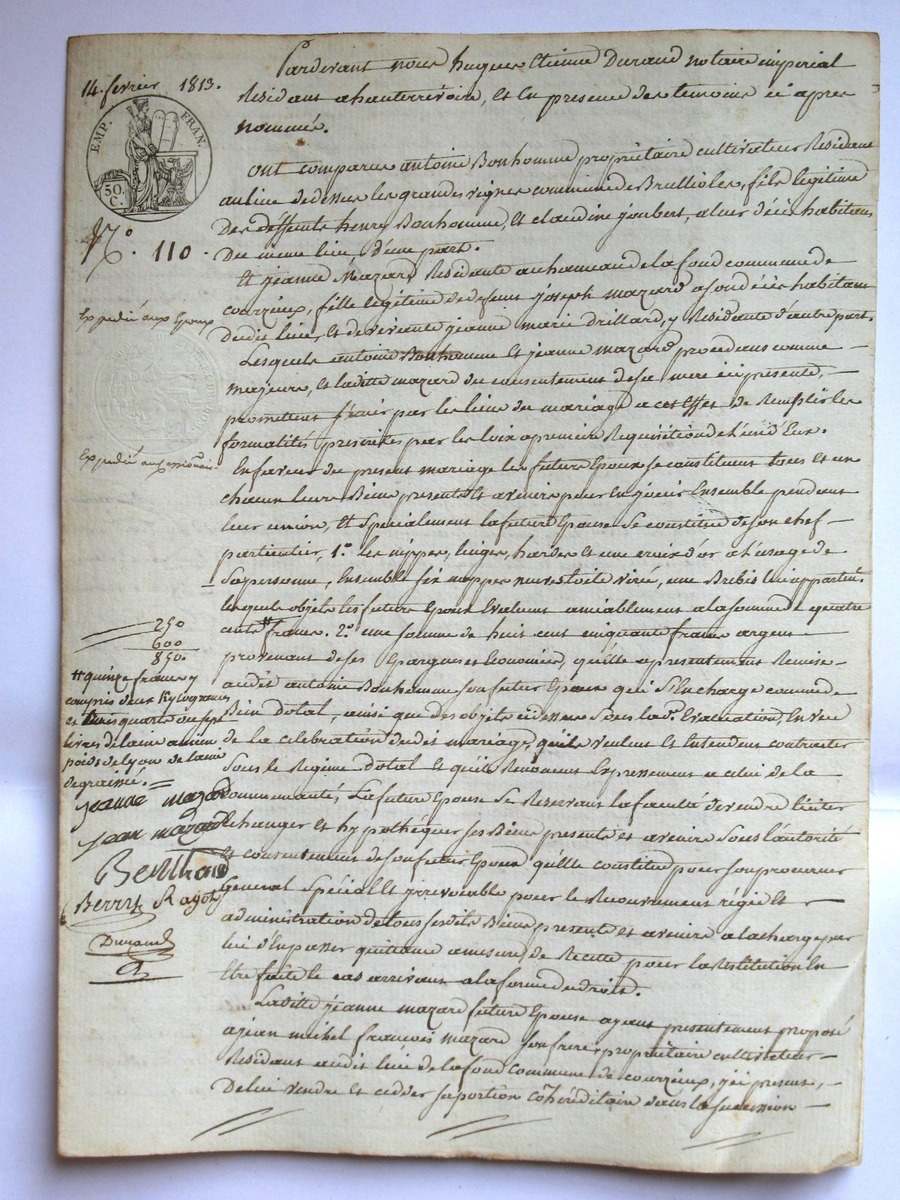 14. fevrier 1813.
EMP. FRAN.
50. C.
N.° 110.
Expedié aux Epoux
Expedié au Cessionaire
Pardevant nous hugues Etienne Durand notaire imperial
Residant a hauterrivoire, Et En presence des temoins ci apres
nommés.
ont comparu antoine Bonhomme proprietaire cultivateur Residant
au lieu de dessus les grandes vignes commune de Brullioles, fils legitime
Des deffunts henry Bonhomme, Et claudine joubert, a leur décès habitans
Du meme lieu, d'une part.
Et jeanne Mazard Residante au hameau de la fond commune de
courzieux, fille legitime de defunt joseph mazard a son décès habitant
dudit lieu, et de vivante jeanne marie Drillard, y Residante d'autre part.
Lesquels antoine Bonhomme Et jeanne mazard procedans comme
majeurs, Et laditte mazard du consentement de sa mere ici presente,
promettent s'unir par les liens du mariage a cet Effet de Remplir les
formalités prescrites par les loix a premiere Requisition de l'un d'Eux.
En faveur du present mariage les futurs Epoux se constituent tous Et un
chacun leurs Biens presents Et avenir pour En jouir Ensemble pendant
leur union, Et specialement la future Epouse se constitue de son chef
particulier, 1.° les nippes, linges, hardes Et une croix d'or a l'usage de
Sa personne, Ensemble six nappes neuves toile virée, une Brebis lui appartent.
lesquels objets les futurs Epoux Evaluent amiablement a la somme de quatre
cent # francs. 2.° une somme de huit cent cinquante francs argent
provenant de ses Epargnes et Economies, qu'elle a presentement Remise
audit antoine Bonhomme son futur Epoux qui s'En charge comme de
Bien Dotal, ainsi que des objets ci dessus sous la d.e Evaluation, En vue
de la celebration dudit mariage, qu'ils veulent et Entendent contracter
sous le Regime Dotal et qu'ils Renoncent Expressement a celui de la
communauté, La future Epouse se Reservant la faculté de vendre liciter
Echanger Et hypothequer ses Biens presents et avenir sous l'autorité
Et consentement de son futur Epoux qu'elle constitue pour son procureur
General special Et irrevocable pour le Recouvrement régie Et
administration de tous ses dits Biens presents et avenir a la charge par
lui d'En passer quittance a mesure de Recette pour la Restitution En
Etre faite le cas arrivant a la forme du droit.
Laditte jeanne mazard future Epouse ayant presentement proposé
a jean michel francois mazard son frere proprietaire cultivateur
Residant audit lieu de la fond commune de courzieux, ici present,
De lui vendre et ceder sa portion cohéréditaire dans la succession
250
600
850.
# quinze francs y
compris deux Kylogrames
et trois quarts ou sept
livres de laine ancien
poids de lyon de laine
degraissée.
jeanne mazard
jean mazard
Berthad
Berry Ragot
Durand